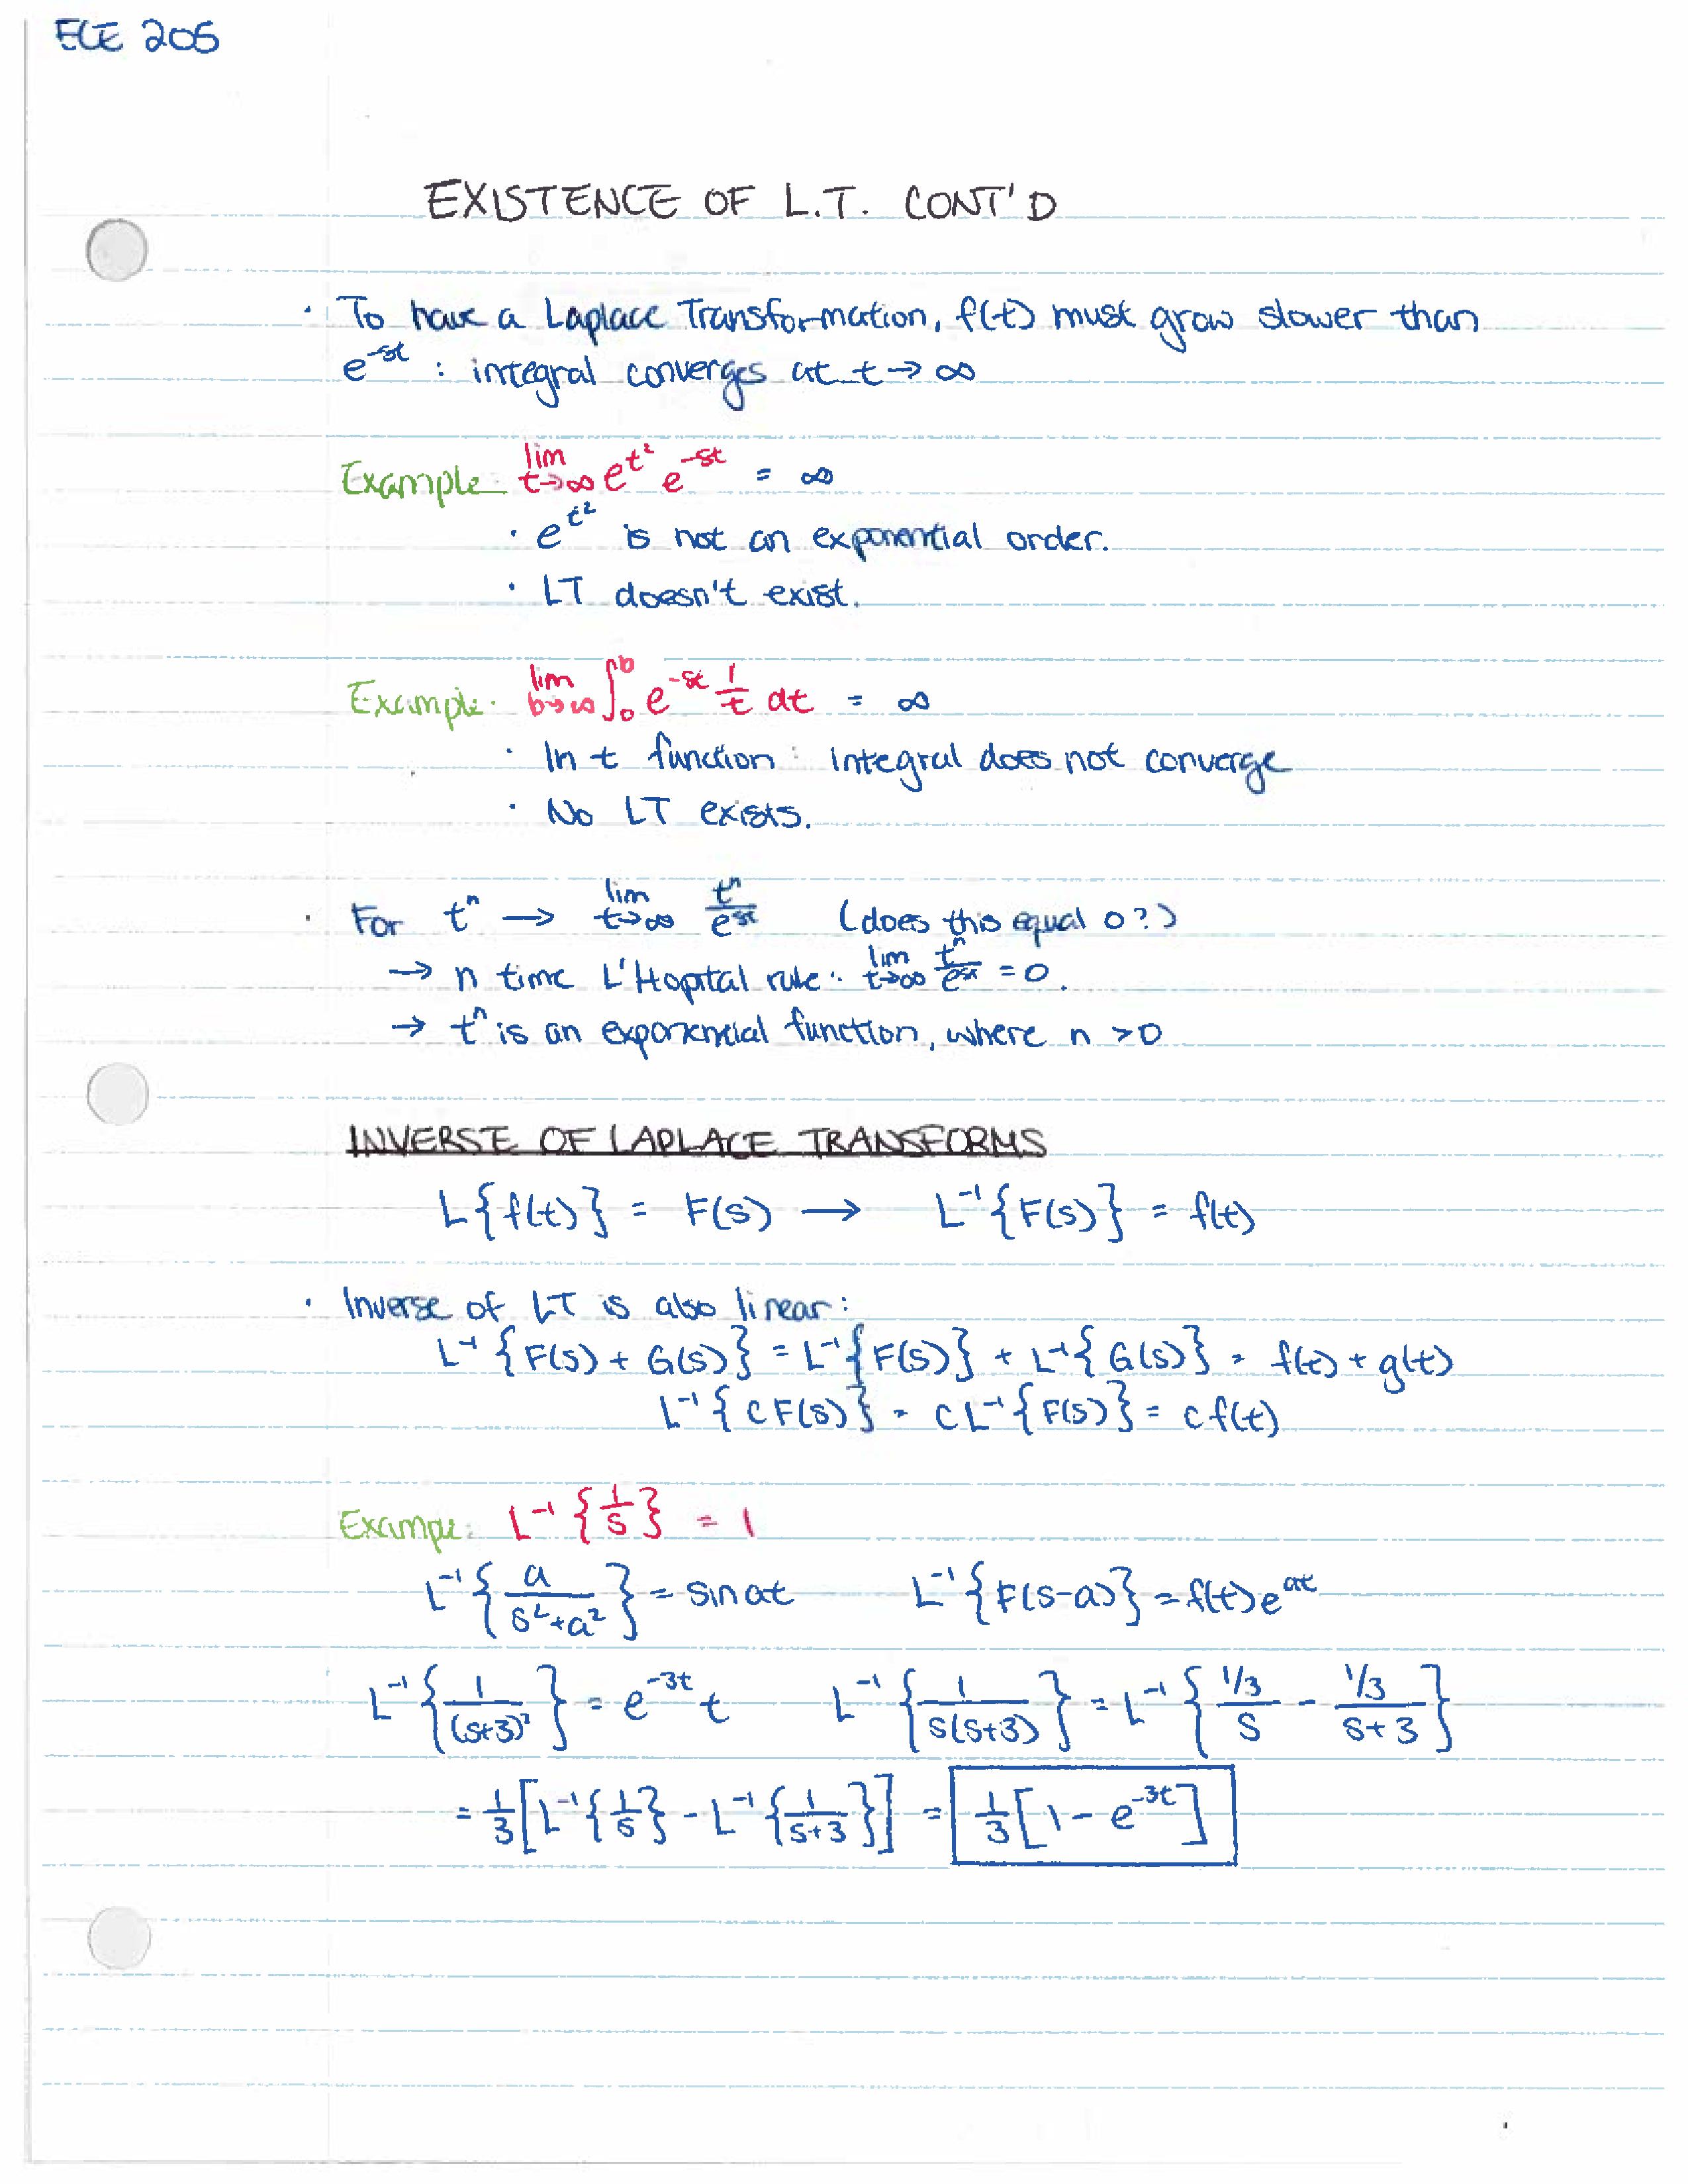 ECE 205
EXISTENCE OF L.T. CONT'D
· To have a Laplace Transformation, f(t) must grow slower than
e^-st : integral converges at t → ∞
Example: lim t→∞ e^t² e^-st = ∞
· e^t² is not an exponential order.
· LT doesn't exist.
Example: lim b→∞ ∫₀^b e^-st 1/t dt = ∞
· ln t function : integral does not converge
· No LT exists.
· For t^n → lim t→∞ t^n/e^st (does this equal 0?)
→ n time L'Hopital rule: lim t→∞ t^n/e^st = 0.
→ t^n is an exponential function, where n > 0
INVERSE OF LAPLACE TRANSFORMS
L{f(t)} = F(s) → L⁻¹{F(s)} = f(t)
· Inverse of LT is also linear:
L⁻¹{F(s) + G(s)} = L⁻¹{F(s)} + L⁻¹{G(s)} = f(t) + g(t)
L⁻¹{cF(s)} = cL⁻¹{F(s)} = cf(t)
Example: L⁻¹{1/s} = 1
L⁻¹{a/(s²+a²)} = sin at L⁻¹{F(s-a)} = f(t)e^at
L⁻¹{1/(s+3)²} = e^-3t t L⁻¹{1/(s(s+3))} = L⁻¹{(1/3)/s - (1/3)/(s+3)}
= 1/3[L⁻¹{1/s} - L⁻¹{1/(s+3)}] = 1/3[1 - e^-3t]